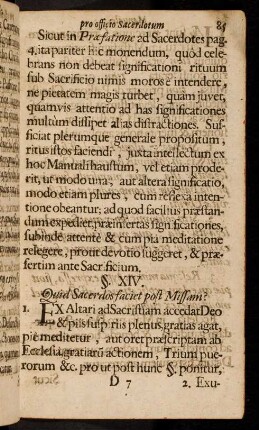 pro officio Sacerdotum 85
Sicut in Præfatione ad Sacerdotes pag.
4. ita pariter hic monendum, quòd cele-
brans non debeat significationi rituum
sub Sacrificio nimis morosè intendere,
ne pietatem magis turbet, quàm juvet,
quamvis attentio ad has significationes
multùm dissipet alias distractiones. Suf-
ficiat plerumque generale propositum,
ritus istos faciendi, juxta intellectum ex
hoc Manuali haustum, vel etiam prode-
rit, ut modò una, aut altera significatio,
modò etiam plures, cum reflexa inten-
tione obeantur; ad quod faciliùs præstan-
dum expediet, præinsertas significationes,
subinde attentè & cum pia meditatione
relegere, prout devotio suggeret, & præ-
sertim ante Sacrificium.
§. XIV.
Quid Sacerdos faciet post Missam?
1. EX Altari ad Sacristiam accedat Deo
& piis suspiriis plenus gratias agat,
piè meditetur, aut oret præscriptam ab
Ecclesia gratiarũ actionem, Trium pue-
rorum &c. prout post hunc §. ponitur,
D 7 2. Exu-